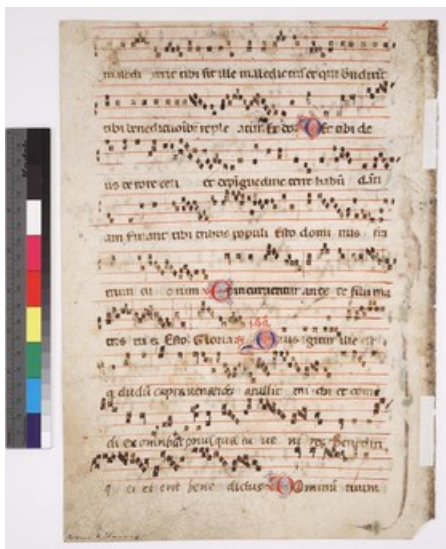 maledi xerit tibi sit ille maledictus et qui bn̄dixit
tibi benedictioibȝ reple atur Et do Det tibi de
us de rore celi et de pīguedine terre habū dāti
am Seruiant tibi tribus populi Esto domi nus fra
trum tu orum Et incuruentur ante te filii ma
tris tu e Esto Gloria Quis igitur ille est
q dudū captā venatōeȝ attulit mi chi et come
di ex omnibȝ priusquā tu ue ni res Benedixi
q ei et erit bene dictus Dominū tuum